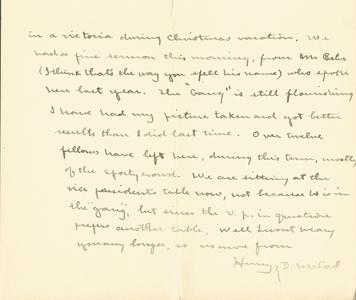 in a victoria during Christmas vacation. We
had a fine sermon this morning, from Mr
(I think thats the way you spell his name) who spoke
here last year. The "Gang" is still flourishing
I have had my picture taken and got better
results than I did last time. Over twelve
fellows have left here, during this term, mostly
of the sporty crowd. We are sitting at the
vice president's table now, not because he is in
the "gang", but since the v. p. in question
prefers another table. Well I wont weary
you any longer, so no more from
Henry D.